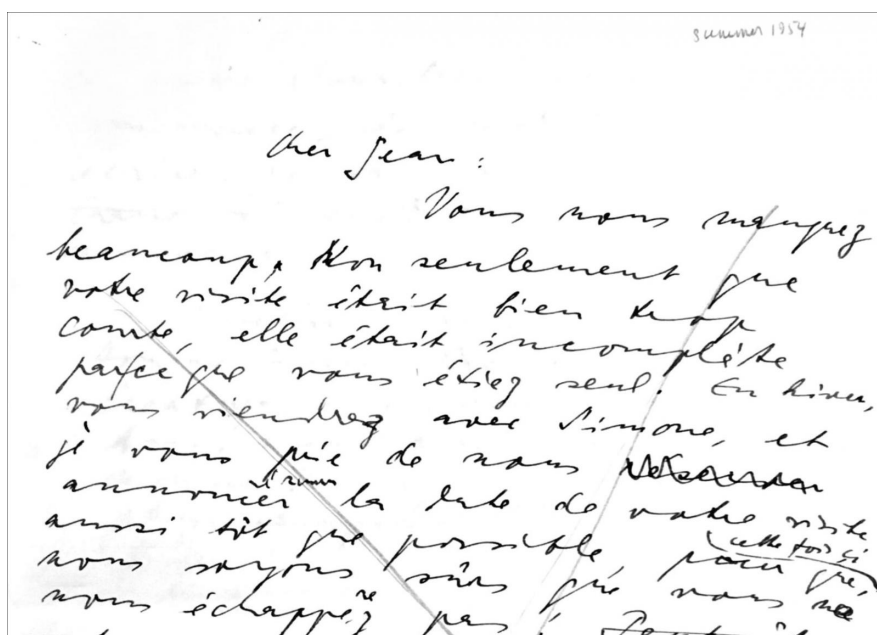 summer 1954
Cher Jean :
Vous nous manquez
beaucoup. Non seulement que
votre visite était bien trop
courte, elle était incomplète
parce que vous étiez seul. En hiver,
vous viendrez avec Simone, et
je vous prie de nous
annoncer la date de votre visite
aussi tôt que possible, pour que,
cette fois ci
nous soyons sûrs que vous ne
nous échappez pas